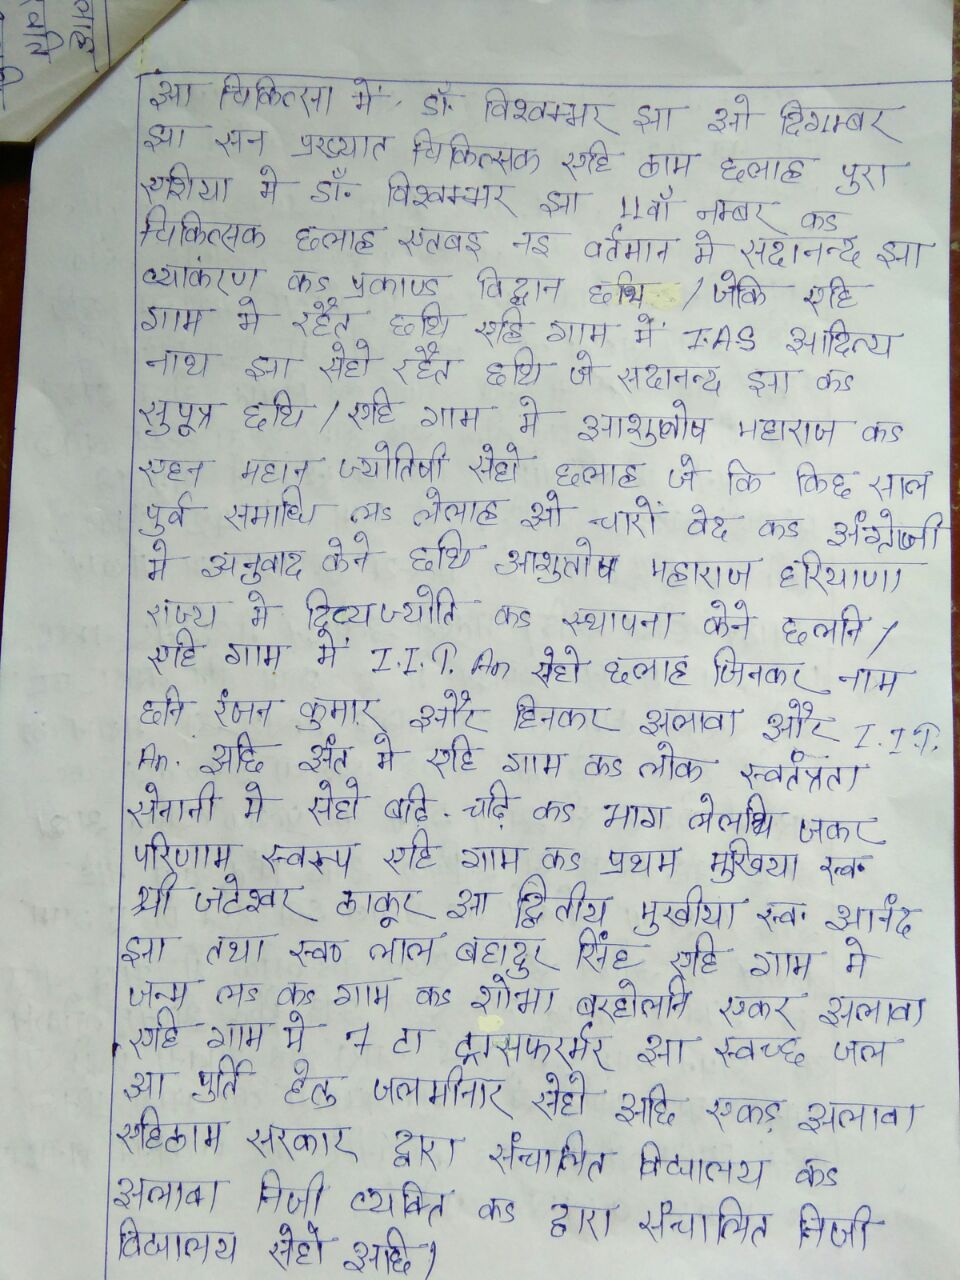 झा चिकित्सा में, डॉ. विश्वम्भर झा ओ दिगम्बर
झा सन प्रख्यात चिकित्सक एहि ठाम छलाह पुरा
एशिया मे डॉ. विश्वम्भर झा 11वाँ नम्बर कड
चिकित्सक छलाह एतबइ नइ वर्तमान मे सदानन्द झा
व्याकंरण कड प्रकाण्ड विद्वान छथि / जेकि एहि
गाम मे रहैत छथि एहि गाम में I.A.S आदित्य
नाथ झा सेहो रहैत छथि जे सदानन्द झा कड
सुपूत्र छथि / एहि गाम मे आशुतोष महाराज कड
एहन महान ज्योतिषी सेहो छलाह जे कि किछ साल
पुर्व समाधि लड लेलाह ओ चारों वेद कड अंग्रेजी
मे अनुवाद केने छथि आशुतोष महाराज हरियाणा
राज्य मे दिव्यज्योति कड स्थापना केने छलनि /
एहि गाम में I.I.T. An सेहो छलाह जिनकर नाम
छनि रंजन कुमार और हिनकर अलावा और I.I.T.
An. अछि अंत मे एहि गाम कड लोक स्वतंत्रता
सेनानी मे सेहो बढि-चढि कड भाग लेलथि जकर
परिणाम स्वरूप एहि गाम कड प्रथम मुखिया स्व.
श्री जटेश्वर ठाकूर आ द्वितीय मुखीया स्व. आनंद
झा तथा स्व० लाल बहादुर सिंह एहि गाम मे
जन्म लड कड गाम कड शोभा बरहोलनि एकर अलावा
एहि गाम मे 7 टा ट्रासफरर्मर आ स्वच्छ जल
आ पुर्ति हेतु जलमीनार सेहो अछि एकड़ अलावा
एहिठाम सरकार द्वारा संचालित विद्यालय कड
अलावा निजी व्यक्ति कड द्वारा संचालित निजी
विद्यालय सेहो अछि /